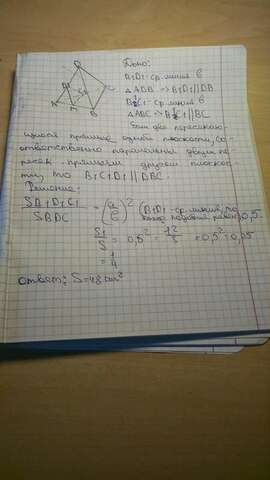 Дано:
B1D1-ср. линия в
△ADB => B1D1||DB
B1C1-ср. линия в
△ABC => B1C1||BC
Если две пересекаю-
щиеся прямые одной плоскости, со-
ответственно параллельны двум пе
ресек. прямым другой плоскос-
ти, то B1C1D1 || DBC.
Решение:
SB1D1C1 / SBDC = (a/b)² (B1D1-ср. линия, по 0,5.
S1/S = 0,5² 12/S = 0,5² = 0,25
= 1/4
Ответ: S=48 см²